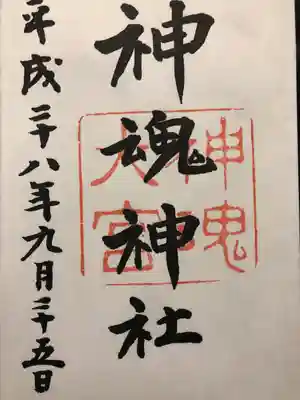 神魂神社
平成二十八年九月二十五日
神魂
大宮